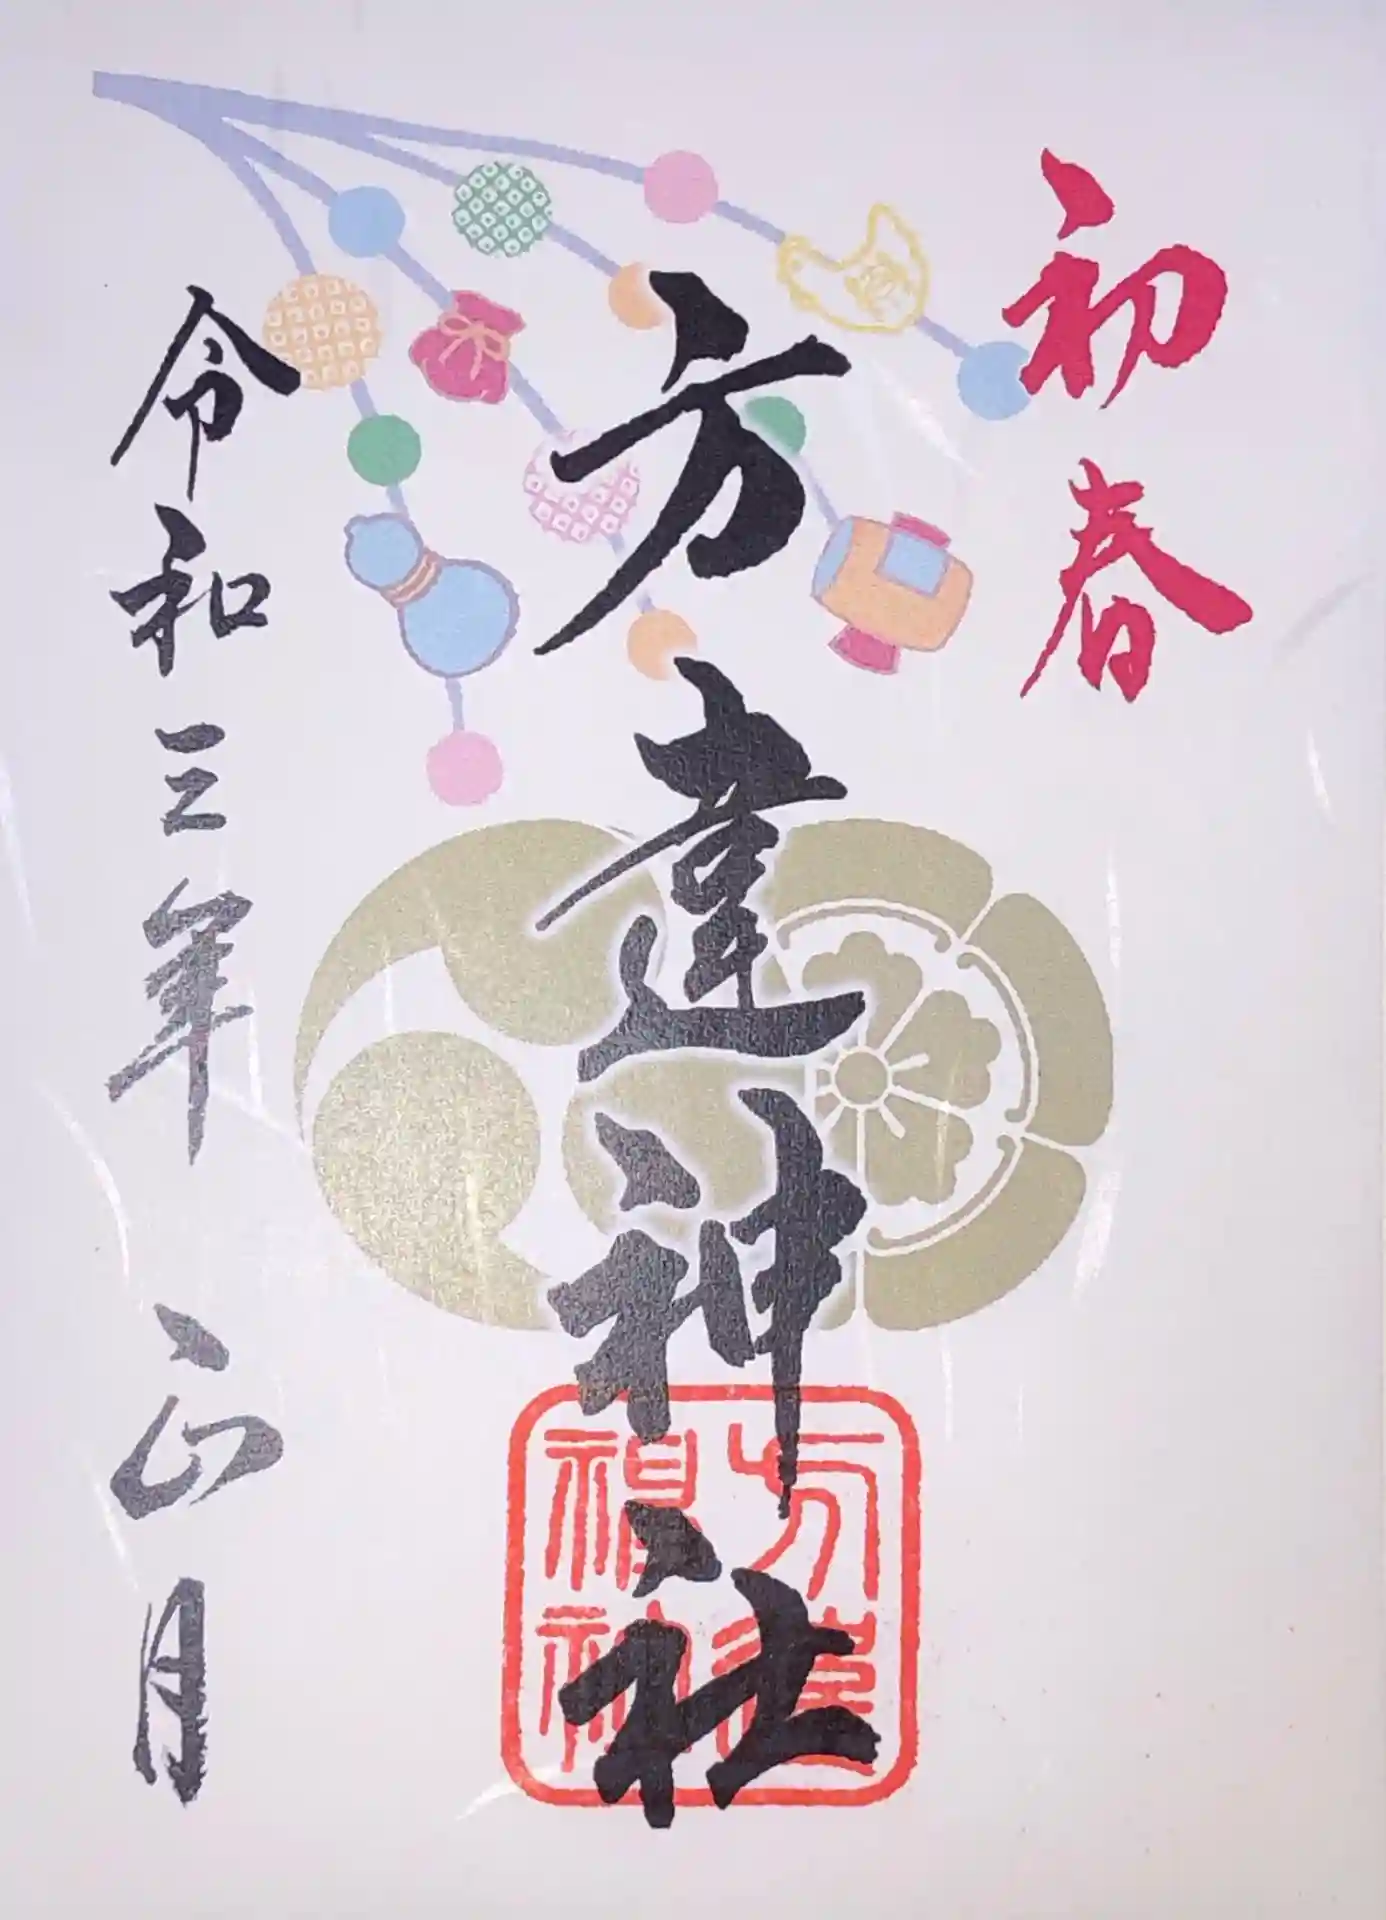 初春
方違神社
方違
令和三年正月